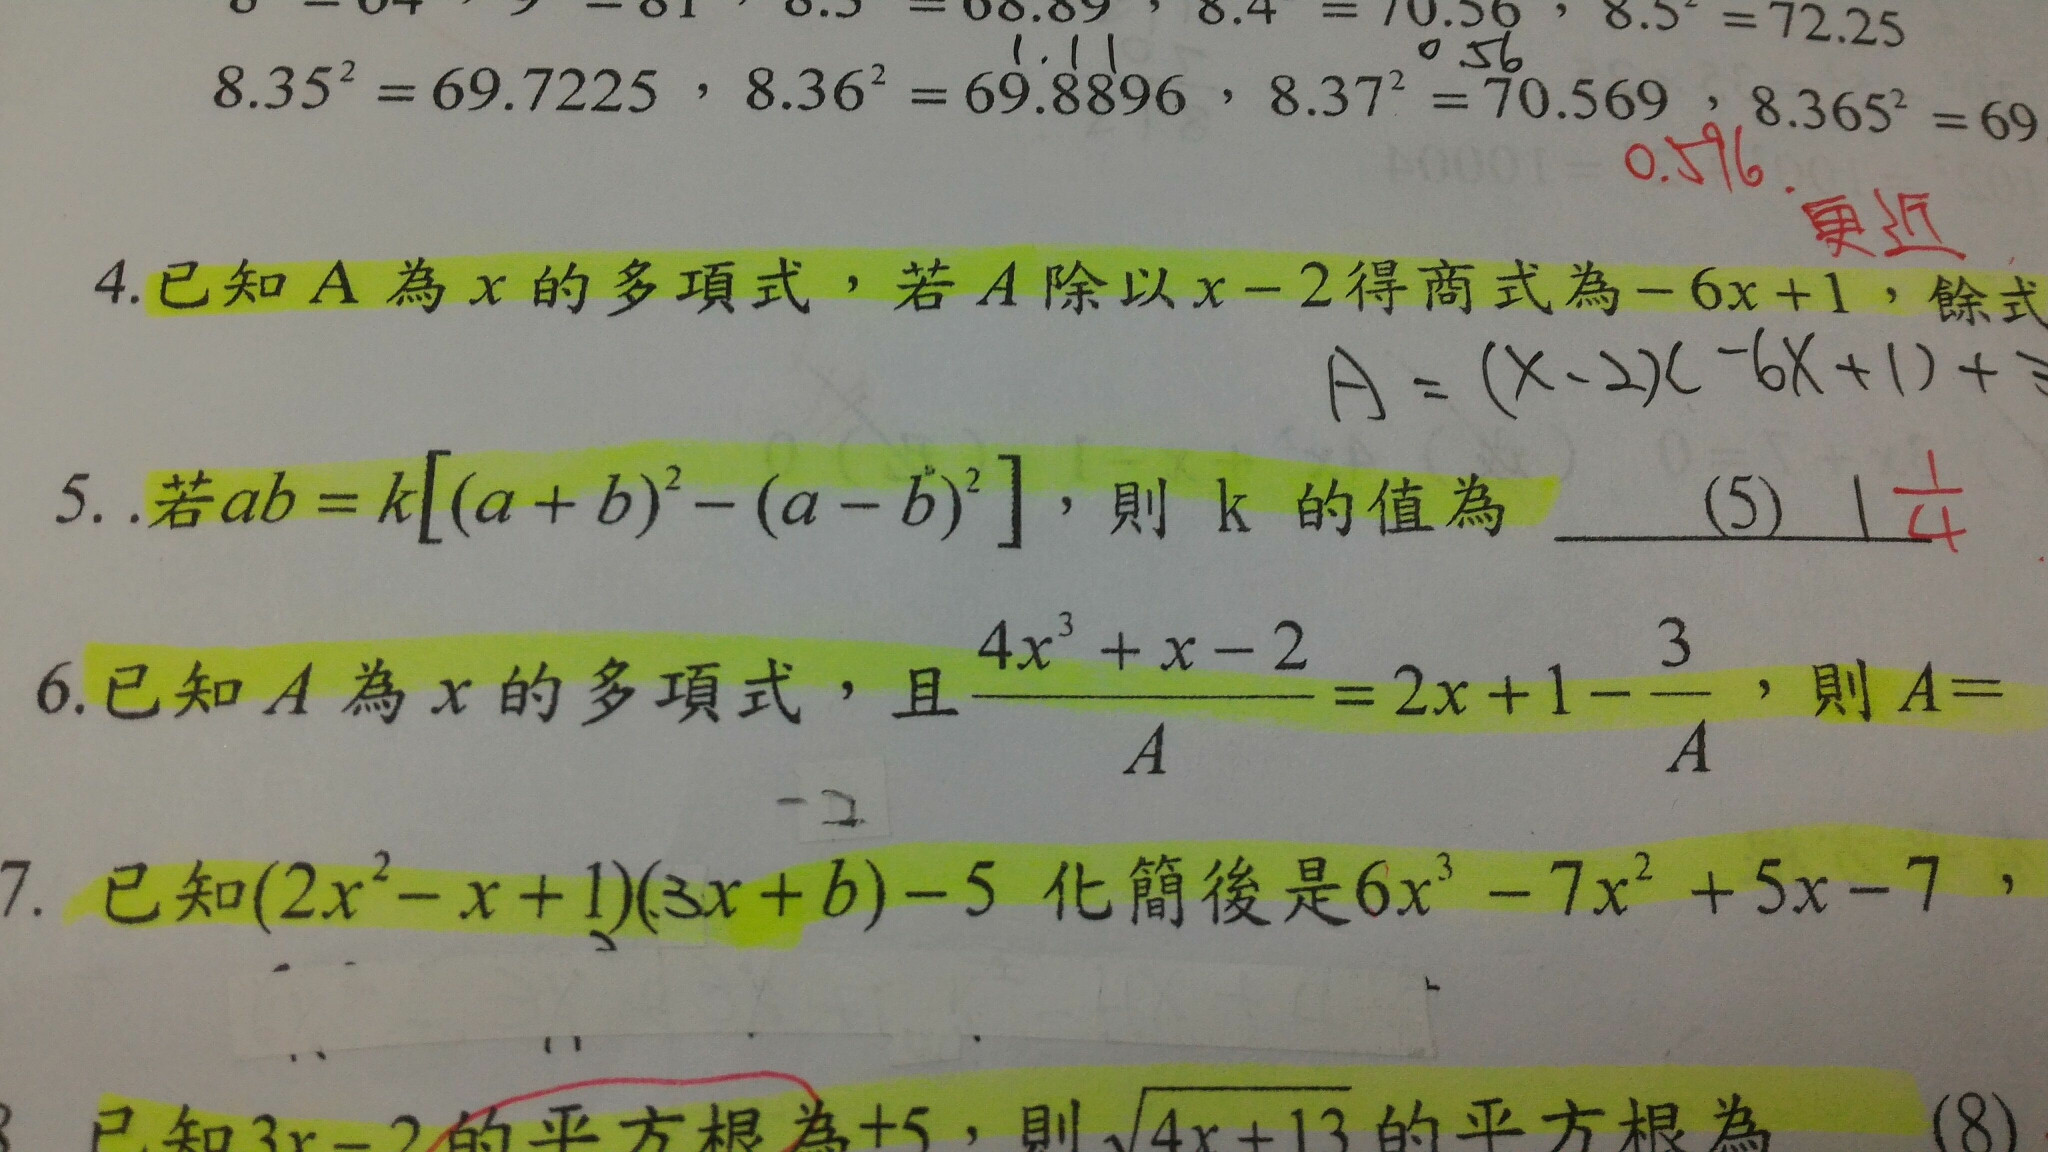 8² = 64，9² = 81，8.3² = 68.89，8.4² = 70.56，8.5² = 72.25
1.11 0.56
8.35² = 69.7225，8.36² = 69.8896，8.37² = 70.569，8.365² = 69
0.596.
更近
4.已知 A 為 x 的多項式，若 A 除以 x − 2 得商式為 − 6x + 1，餘式
A = (x - 2)( -6x + 1) +
5. .若 ab = k[(a + b)² − (a − b)²]，則 k 的值為 (5) 1 1/4
6.已知 A 為 x 的多項式，且 (4x³ + x − 2)/A = 2x + 1 − 3/A，則 A=
-2
7. 已知(2x² − x + 1)(3x + b) − 5 化簡後是 6x³ − 7x² + 5x − 7，
已知 3x − 2 的平方根為±5，則 √(4x + 13) 的平方根為 (8)